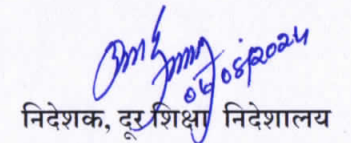 06/08/2024
निदेशक, दूर शिक्षा निदेशालय